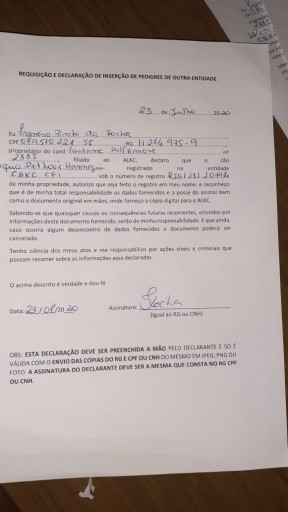 REQUISIÇÃO E DECLARAÇÃO DE INSERÇÃO DE PEDIGREE DE OUTRA ENTIDADE
23 de Junho 2020
Eu Pinto da Rocha
CPF RG 11274975-9
proprietário do canil nº
2885 filiado ao ALKC, declaro que o cão
registrado na entidade
CBKC CFI sob o número de registro
de minha propriedade, autorizo que seja feito o registro em meu nome, e reconheço
que é de minha total responsabilidade os dados fornecidos e a posse do animal bem
como o documento original em mãos, onde forneço a cópia digital para o ALKC.
Sabendo-se que quaisquer causas ou consequências futuras recorrentes, oriundos por
informações deste documento fornecido, serão de minha responsabilidade. E que ainda,
caso ocorra algum desencontro de dados fornecidos o documento poderá ser
cancelado.
Tenho ciência dos meus atos e me responsabilizo por ações cíveis e criminais que
possam recorrer sobre as informações aqui declaradas.
O acima descrito é verdade e dou fé
Data: Assinatura: Rocha
(Igual ao RG ou CNH)
OBS: ESTA DECLARAÇÃO DEVE SER PREENCHIDA A MÃO PELO DECLARANTE E SÓ É
VÁLIDA COM O ENVIO DAS CÓPIAS DO RG E CPF OU CNH DO MESMO EM JPEG, PNG OU
FOTO. A ASSINATURA DO DECLARANTE DEVE SER A MESMA QUE CONSTA NO RG CPF
OU CNH.